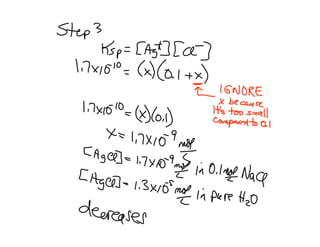 Step 3
Ksp = [Ag+][Cl-]
1.7x10-10 = (x)(0.1 + x)
IGNORE
x because
It's too small
compared to 0.1
1.7x10-10 = (x)(0.1)
x = 1.7x10-9 mol/L
[AgCl] = 1.7x10-9 mol/L in 0.1 mol/L NaCl
[AgCl] = 1.3x10-5 mol/L in pure H2O
decreases